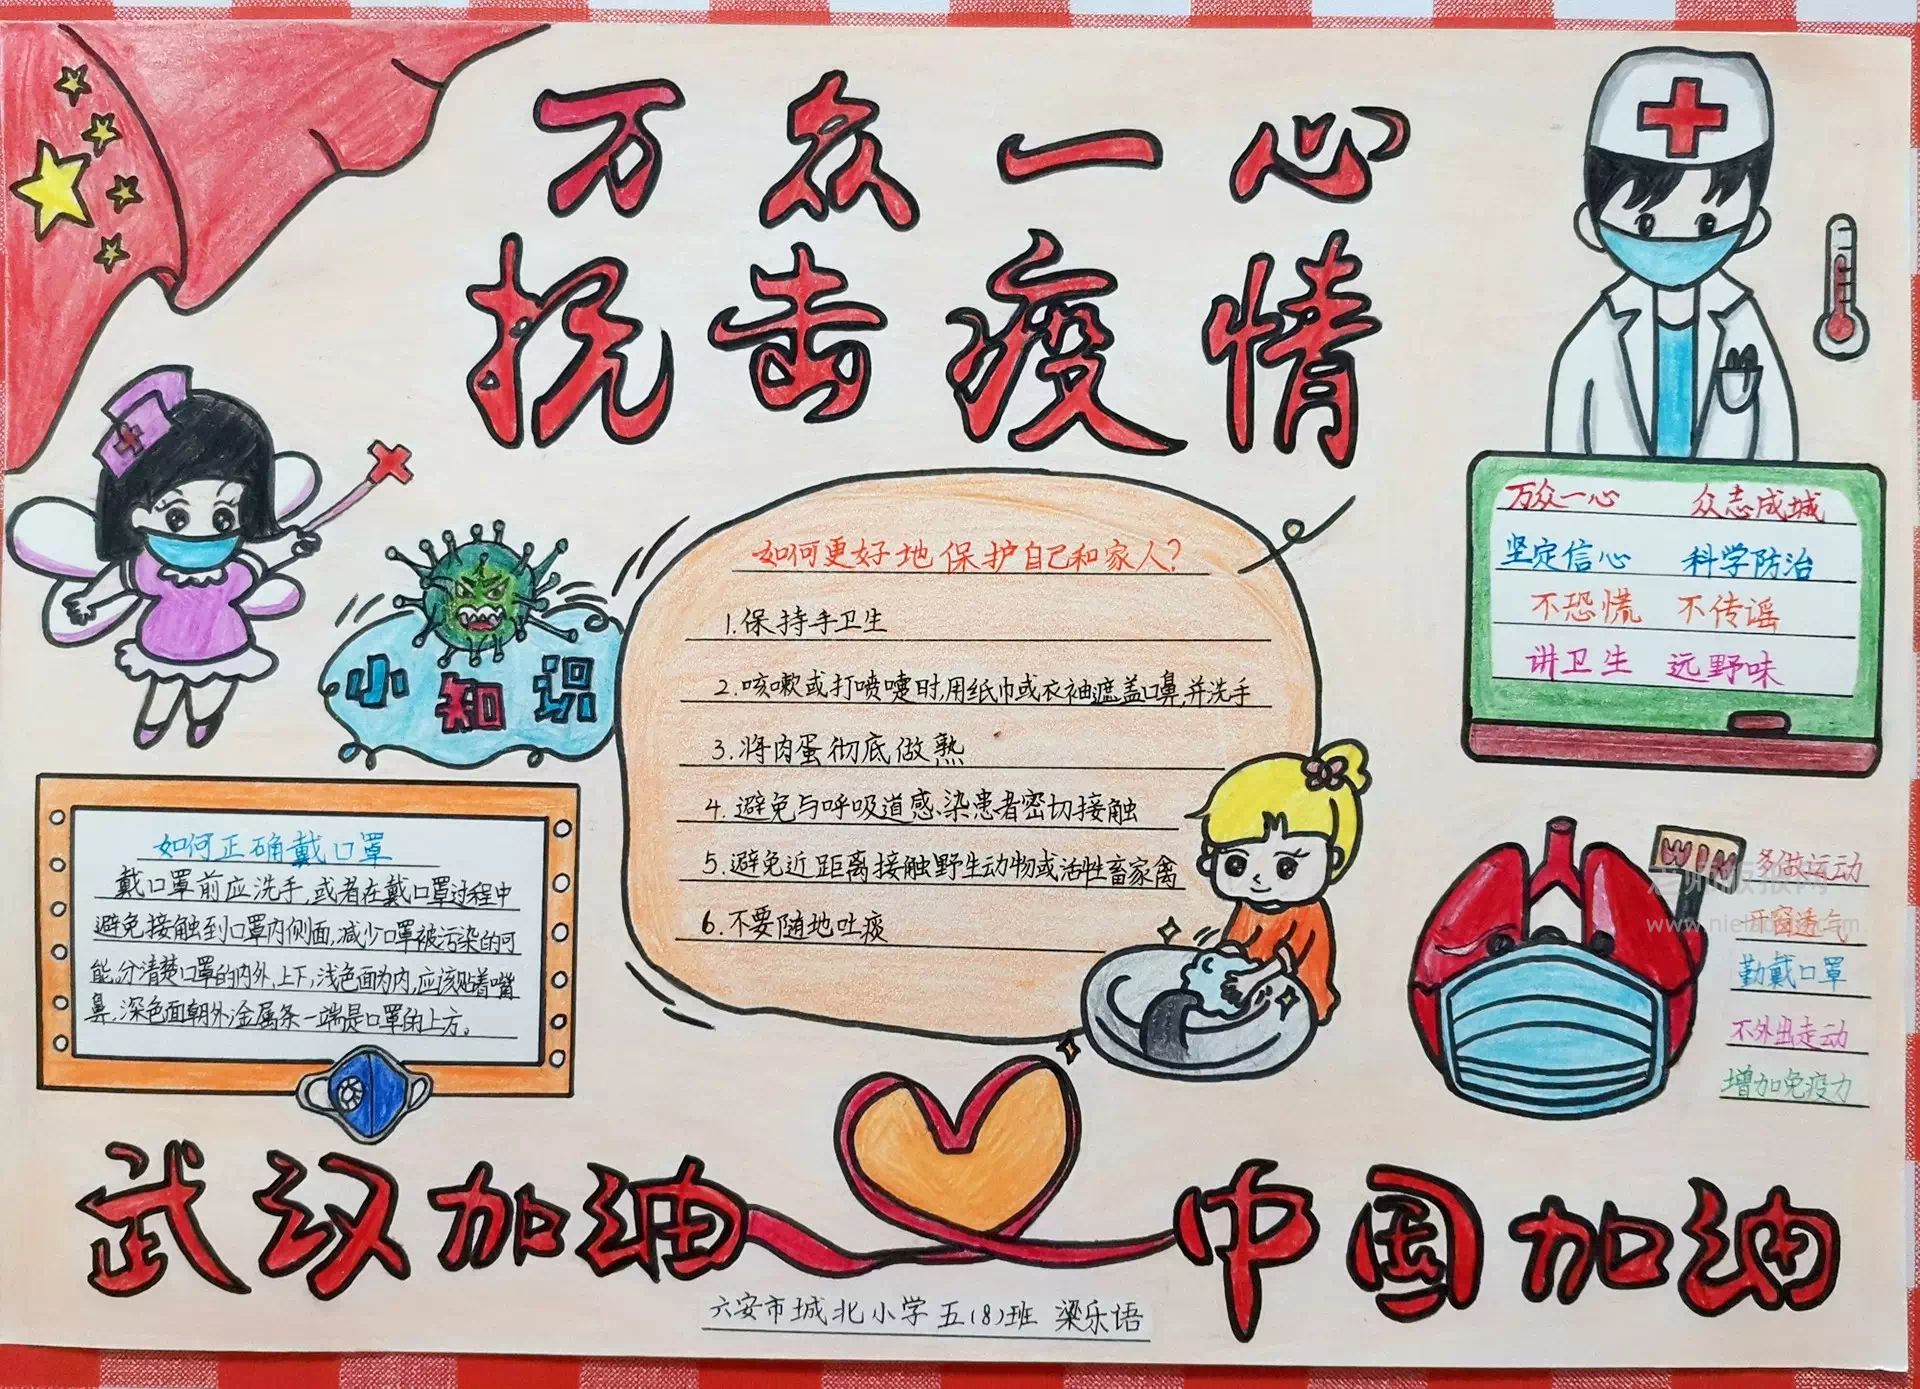 万众一心
抗击疫情
万众一心 众志成城
坚定信心 科学防治
不恐慌 不传谣
讲卫生 远野味
小知识
如何更好地保护自己和家人?
1.保持手卫生
2.咳嗽或打喷嚏时,用纸巾或衣袖遮盖口鼻,并洗手
3.将肉蛋彻底做熟
4.避免与呼吸道感染患者密切接触
5.避免近距离接触野生动物或活性畜家禽
6.不要随地吐痰
如何正确戴口罩
戴口罩前应洗手,或者在戴口罩过程中
避免接触到口罩内侧面,减少口罩被污染的可
能,分清楚口罩的内外,上下,浅色面为内,应该贴着嘴
鼻,深色面朝外;金属条一端是口罩的上方。
WIN
多做运动
开窗透气
勤戴口罩
不外出走动
增加免疫力
武汉加油 中国加油
六安市城北小学五(8)班 梁乐语